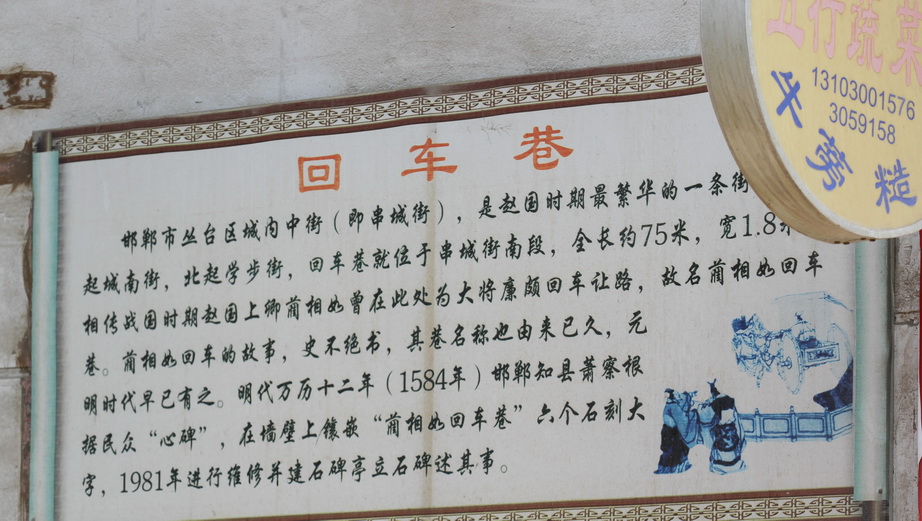 回车巷
邯郸市丛台区城内中街（即串城街），是赵国时期最繁华的一条街
起城南街，北起学步街，回车巷就位于串城街南段，全长约75米，宽1.8米
相传战国时期赵国上卿蔺相如曾在此处为大将廉颇回车让路，故名蔺相如回车
巷。蔺相如回车的故事，史不绝书，其巷名称也由来已久，元
明时代早已有之。明代万历十二年（1584年）邯郸知县萧察根
据民众“心碑”，在墙壁上镶嵌“蔺相如回车巷”六个石刻大
字，1981年进行维修并建石碑亭立石碑述其事。
五行蔬菜
13103001576
3059158
糙